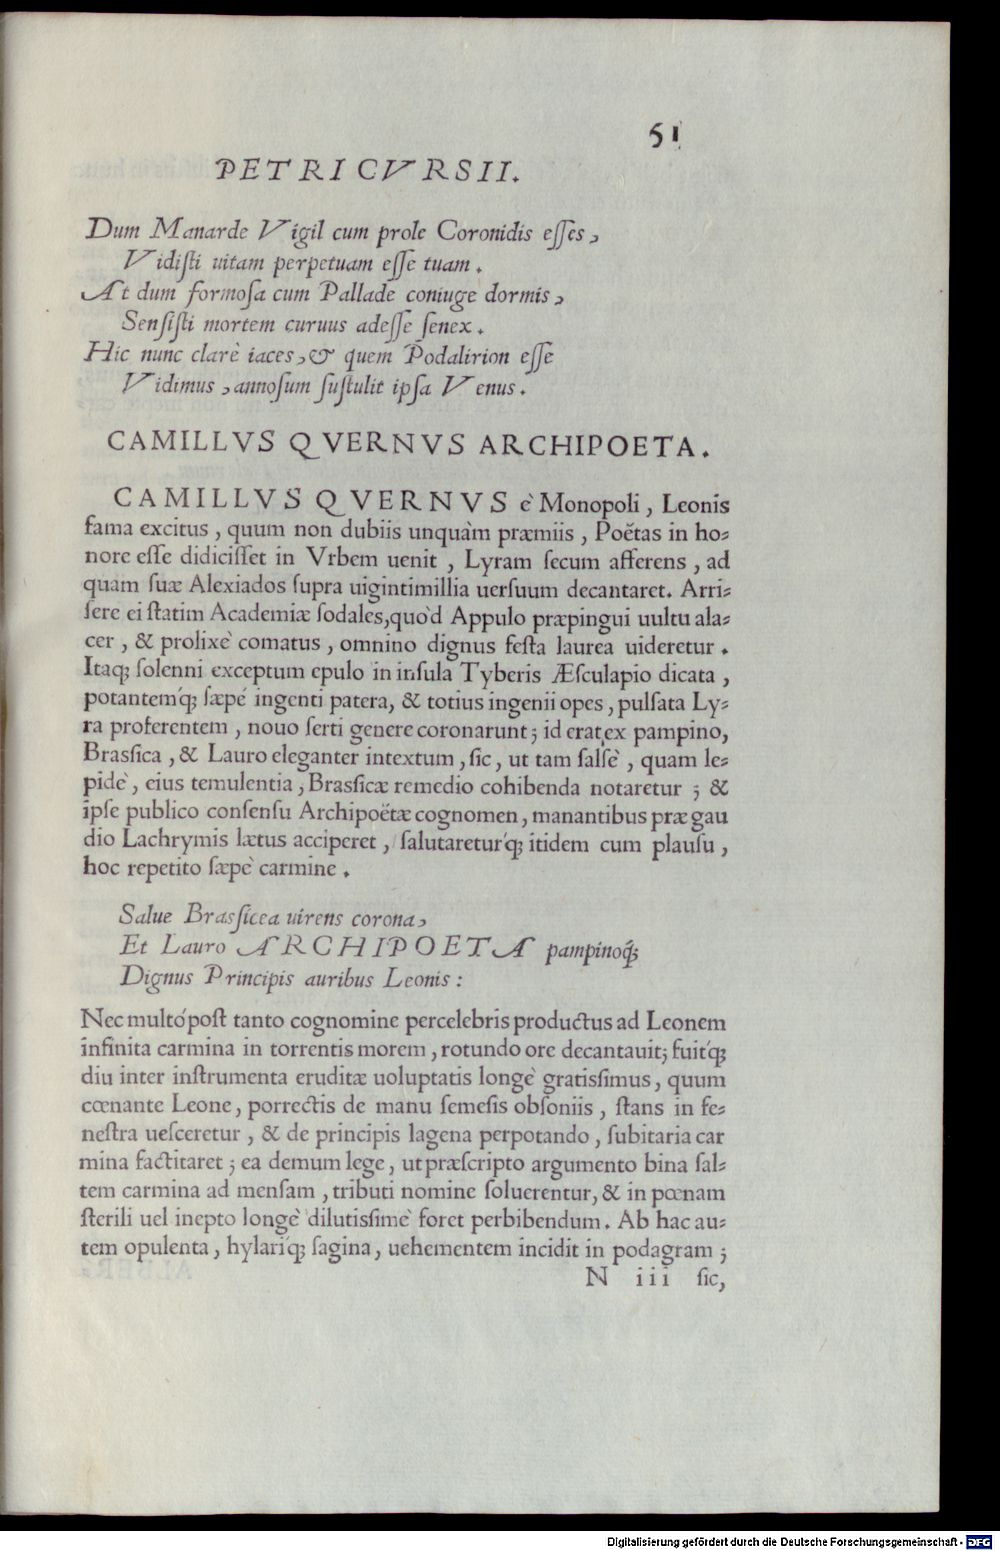 51
PETRI CVRSII.
Dum Manarde Vigil cum prole Coronidis esses,
Vidisti uitam perpetuam esse tuam.
At dum formosa cum Pallade coniuge dormis,
Sensisti mortem curuus adesse senex.
Hic nunc clarè iaces, & quem Podalirion esse
Vidimus, annosum sustulit ipsa Venus.
CAMILLVS QVERNVS ARCHIPOETA.
CAMILLVS QVERNVS è Monopoli, Leonis
fama excitus, quum non dubiis unquàm præmiis, Poëtas in ho-
nore esse didicisset in Vrbem uenit, Lyram secum afferens, ad
quàm suæ Alexiados supra uigintimillia uersuum decantaret. Arri-
sere ei statim Academiæ sodales, quòd Appulo præpingui uultu ala-
cer, & prolixè comatus, omnino dignus festa laurea uideretur.
Itaq; solenni exceptum epulo in insula Tyberis Æsculapio dicata,
potantem'q; sæpé ingenti patera, & totius ingenii opes, pulsata Ly-
ra proferentem, nouo serti genere coronarunt; id erat ex pampino,
Brassica, & Lauro eleganter intextum, sic, ut tam salsè, quam le-
pidè, eius temulentia, Brassicæ remedio cohibenda notaretur; &
ipse publico consensu Archipoëtæ cognomen, manantibus præ gau
dio Lachrymis lætus acciperet, salutaretur'q; itidem cum plausu,
hoc repetito sæpè carmine.
Salue Brassicea uirens corona,
Et Lauro ARCHIPOETA pampino'q;
Dignus Principis auribus Leonis:
Nec multó post tanto cognomine percelebris productus ad Leonem
infinita carmina in torrentis morem, rotundo ore decantauit; fuit'q;
diu inter instrumenta eruditæ uoluptatis longè gratissimus, quum
cœnante Leone, porrectis de manu semesis obsoniis, stans in fe-
nestra uesceretur, & de principis lagena perpotando, subitaria car
mina factitaret; ea demum lege, ut præscripto argumento bina sal-
tem carmina ad mensam, tributi nomine soluerentur, & in pœnam
sterili uel inepto longè dilutissimè foret perbibendum. Ab hac au-
tem opulenta, hylari'q; sagina, uehementem incidit in podagram;
N iii sic,
Digitalisierung gefördert durch die Deutsche Forschungsgemeinschaft - DFG